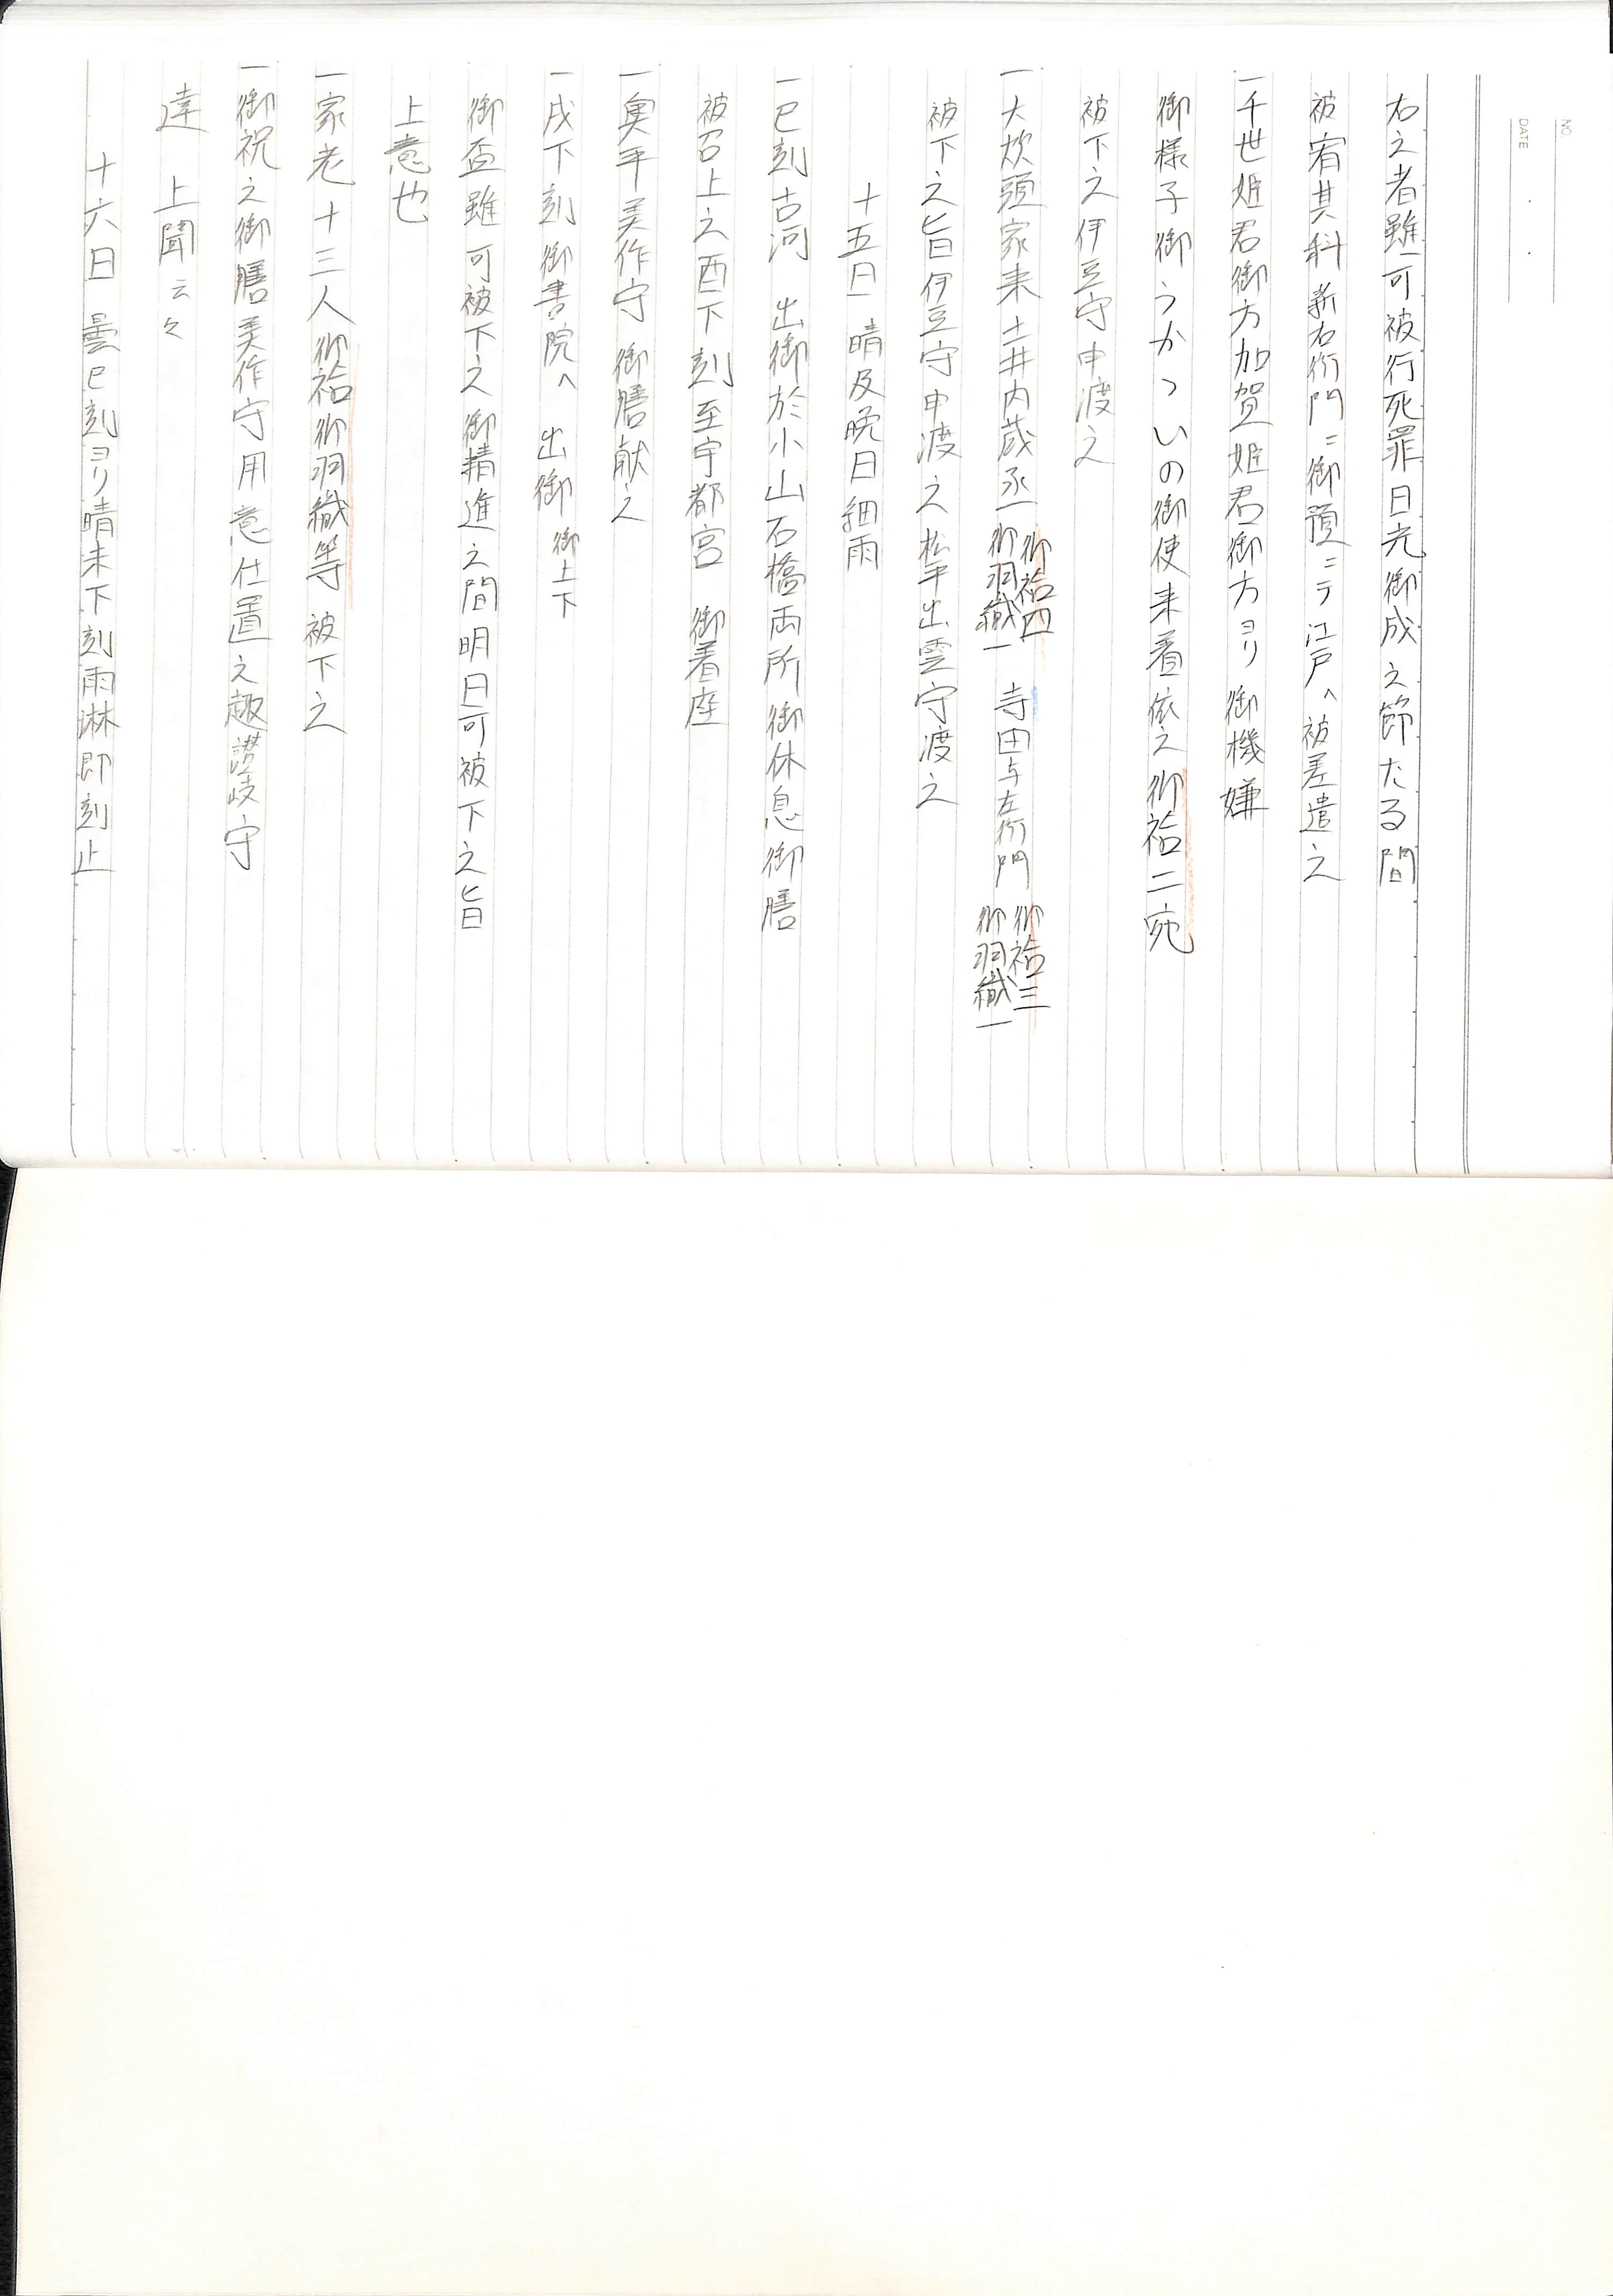 NO.
DATE
右之者雖可被行死罪日光御成之節たる間
被宥其科新右衛門ニ御預ニテ江戸ヘ被差遣之
一千世姫君御方加賀姫君御方ヨリ御機嫌
御様子御うかゝいの御使来着依之御袷二宛
被下之伊豆守申渡之
一大炊頭家来土井内蔵丞 御袷四 御羽織一 寺田与左衛門 御袷三 御羽織一
被下之旨伊豆守申渡之松平出雲守渡之
十五日 晴及晩日細雨
一巳刻古河 出御於小山石橋両所御休息御膳
被召上之酉下刻至宇都宮 御着座
一奥平美作守 御膳献之
一戌下刻御書院ヘ 出御 御上下
御盃雖可被下之御精進之間明日可被下之旨
上意也
一家老十三人御袷御羽織等 被下之
一御祝之御膳美作守用意仕置之趣讃岐守
達 上聞云々
十六日 曇巳刻ヨリ晴未下刻雨淋即刻止